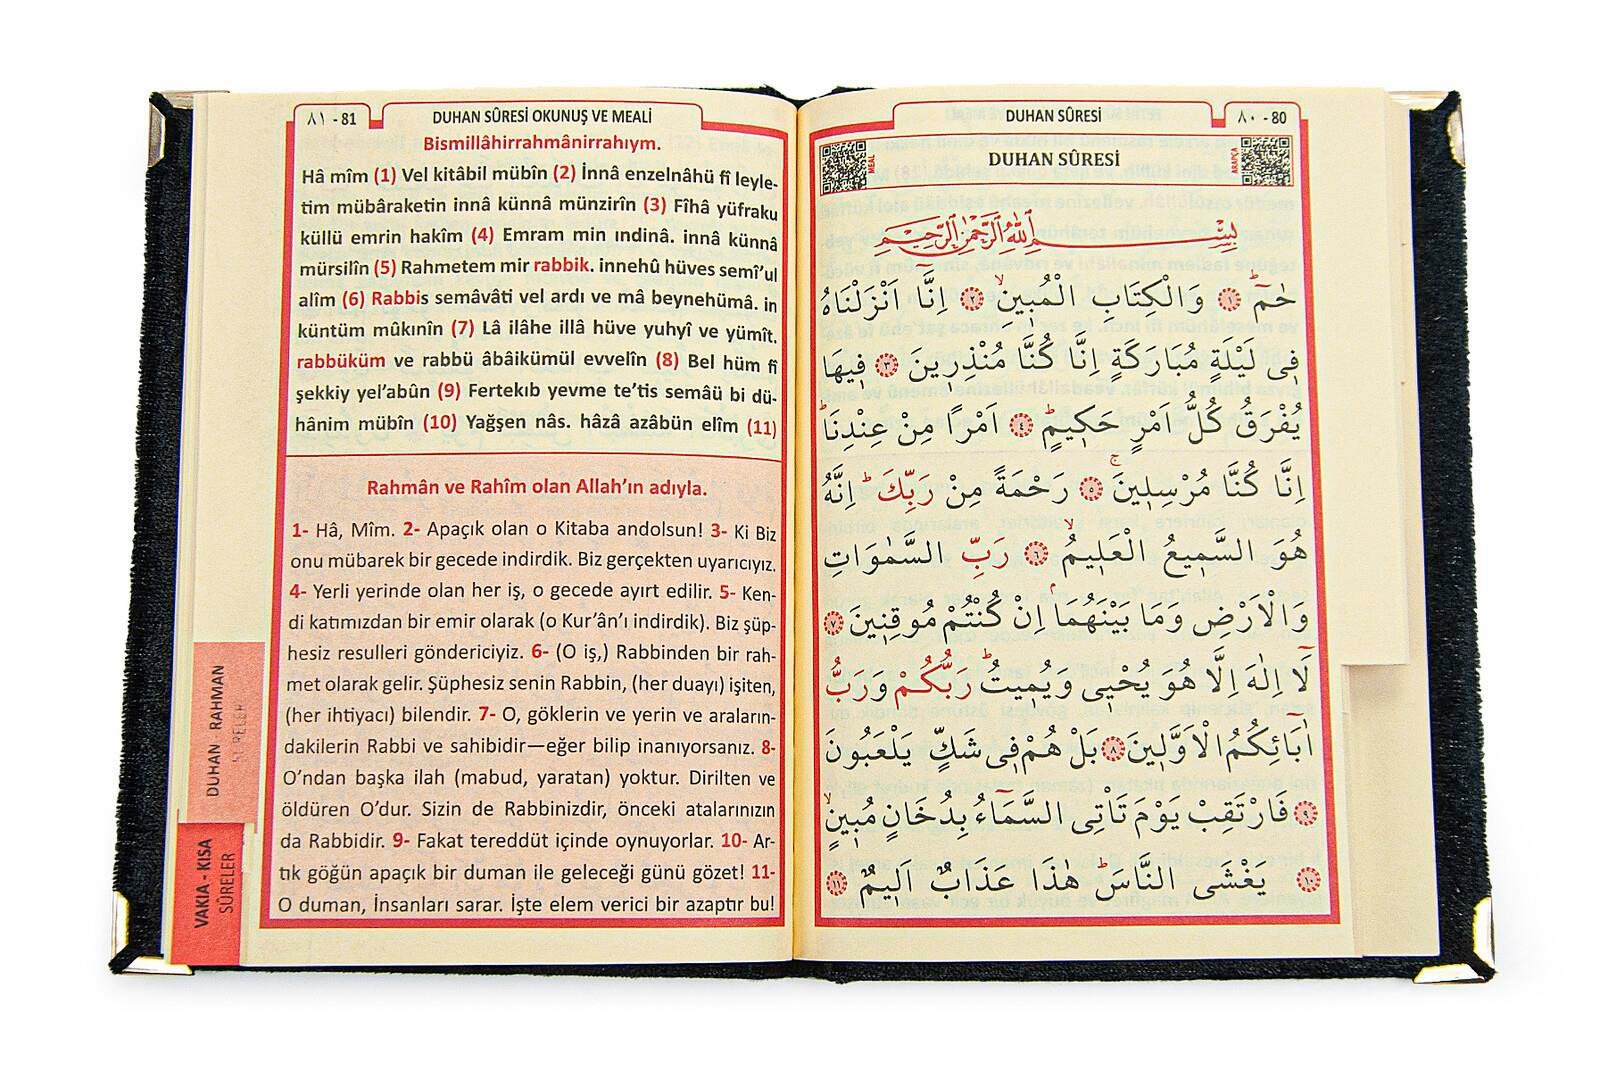 ٨١ - 81
DUHAN SÛRESİ OKUNUŞ VE MEALİ
Bismillâhirrahmânirrahıym.
Hâ mîm (1) Vel kitâbil mübîn (2) İnnâ enzelnâhü fî leyle-
tim mübâraketin innâ künnâ münzirîn (3) Fîhâ yüfraku
küllü emrin hakîm (4) Emram min ındinâ. innâ künnâ
mürsilîn (5) Rahmetem mir rabbik. innehû hüves semî'ul
alîm (6) Rabbis semâvâti vel ardı ve mâ beynehümâ. in
küntüm mûkınîn (7) Lâ ilâhe illâ hüve yuhyî ve yümît.
rabbüküm ve rabbü âbâikümül evvelîn (8) Bel hüm fî
şekkiy yel'abûn (9) Fertekıb yevme te'tis semâü bi dü-
hânim mübîn (10) Yağşen nâs. hâzâ azâbün elîm (11)
Rahmân ve Rahîm olan Allah'ın adıyla.
1- Hâ, Mîm. 2- Apaçık olan o Kitaba andolsun! 3- Ki Biz
onu mübarek bir gecede indirdik. Biz gerçekten uyarıcıyız.
4- Yerli yerinde olan her iş, o gecede ayırt edilir. 5- Ken-
di katımızdan bir emir olarak (o Kur'ân'ı indirdik). Biz şüp-
hesiz resulleri göndericiyiz. 6- (O iş,) Rabbinden bir rah-
met olarak gelir. Şüphesiz senin Rabbin, (her duayı) işiten,
(her ihtiyacı) bilendir. 7- O, göklerin ve yerin ve araların-
dakilerin Rabbi ve sahibidir—eğer bilip inanıyorsanız. 8-
O'ndan başka ilah (mabud, yaratan) yoktur. Dirilten ve
öldüren O'dur. Sizin de Rabbinizdir, önceki atalarınızın
da Rabbidir. 9- Fakat tereddüt içinde oynuyorlar. 10- Ar-
tık göğün apaçık bir duman ile geleceği günü gözet! 11-
O duman, İnsanları sarar. İşte elem verici bir azaptır bu!
DUHAN - RAHMAN
SÛRELER
VAKIA - KISA
SÛRELER
DUHAN SÛRESİ
٨٠ - 80
MEAL
DUHAN SÛRESİ
ARAPÇA
بِسْمِ اللّٰهِ الرَّحْمٰنِ الرَّحِيمِ
حٰمٓ ۚ ﴿١﴾ وَالْكِتَابِ الْمُبِينِۙ ﴿٢﴾ اِنَّٓا اَنْزَلْنَاهُ
فِى لَيْلَةٍ مُبَارَكَةٍ اِنَّا كُنَّا مُنْذِرِينَ ﴿٣﴾ فِيهَا
يُفْرَقُ كُلُّ اَمْرٍ حَكِيمٍۜ ﴿٤﴾ اَمْرًا مِنْ عِنْدِنَاۜ
اِنَّا كُنَّا مُرْسِلِينَۚ ﴿٥﴾ رَحْمَةً مِنْ رَبِّكَۜ اِنَّهُ
هُوَ السَّمِيعُ الْعَلِيمُۙ ﴿٦﴾ رَبِّ السَّمٰوَاتِ
وَالْاَرْضِ وَمَا بَيْنَهُمَاۢ اِنْ كُنْتُمْ مُوقِنِينَ ﴿٧﴾
لَٓا اِلٰهَ اِلَّا هُوَ يُحْيِى وَيُمِيتُۜ رَبُّكُمْ وَرَبُّ
اٰبَٓائِكُمُ الْاَوَّلِينَ ﴿٨﴾ بَلْ هُمْ فِى شَكٍّ يَلْعَبُونَ
﴿٩﴾ فَارْتَقِبْ يَوْمَ تَاْتِى السَّمَٓاءُ بِدُخَانٍ مُبِينٍۙ
﴿١٠﴾ يَغْشَى النَّاسَۜ هٰذَا عَذَابٌ اَلِيمٌ ﴿١١﴾